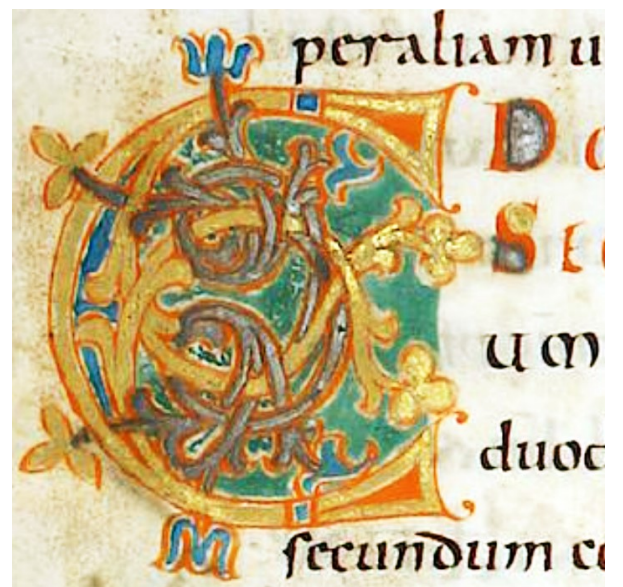 peraliam u
C
D
um
duo
secundum